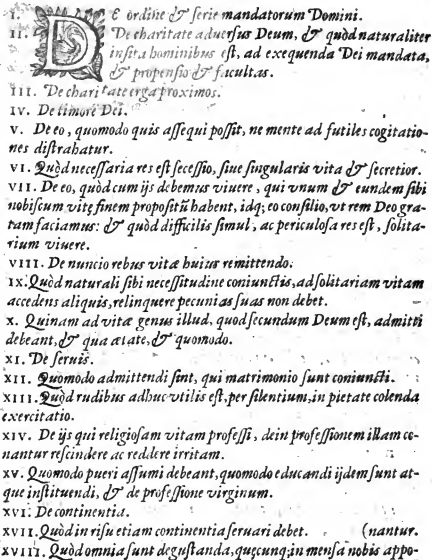 I. DE ordine & serie mandatorum Domini.
II. De charitate aduersus Deum, & quòd naturaliter
insita hominibus est, ad exequenda Dei mandata,
& propensio & facultas.
III. De charitate erga proximos.
IV. De timore Dei.
V. De eo, quomodo quis assequi possit, ne mente ad futiles cogitatio-
nes distrahatur.
VI. Quòd necessaria res est secessio, siue singularis vita & secretior.
VII. De eo, quòd cum ijs debemus viuere, qui vnum & eundem sibi
nobiscum vitę finem propositũ habent, idq; eo consilio, vt rem Deo gra-
tam faciamus: & quòd difficilis simul, ac periculosa res est, solita-
rium viuere.
VIII. De nuncio rebus vitæ huius remittendo.
IX. Quòd naturali sibi necessitudine coniunctis, ad solitariam vitam
accedens aliquis, relinquere pecunias suas non debet.
X. Quinam ad vitæ genus illud, quod secundum Deum est, admitti
debeant, & qua ætate, & quomodo.
XI. De seruis.
XII. Quomodo admittendi sint, qui matrimonio sunt coniuncti.
XIII. Quòd rudibus adhuc vtilis est, per silentium, in pietate colenda
exercitatio.
XIV. De ijs qui religiosam vitam professi, dein professionem illam co-
nantur rescindere ac reddere irritam.
XV. Quomodo pueri assumi debeant, quomodo educandi ijdem sunt at-
que instituendi, & de professione virginum.
XVI. De continentia.
XVII. Quòd in risu etiam continentia seruari debet. (nantur.
XVIII. Quòd omnia sunt degustanda, quęcunq; in mensa nobis appo-